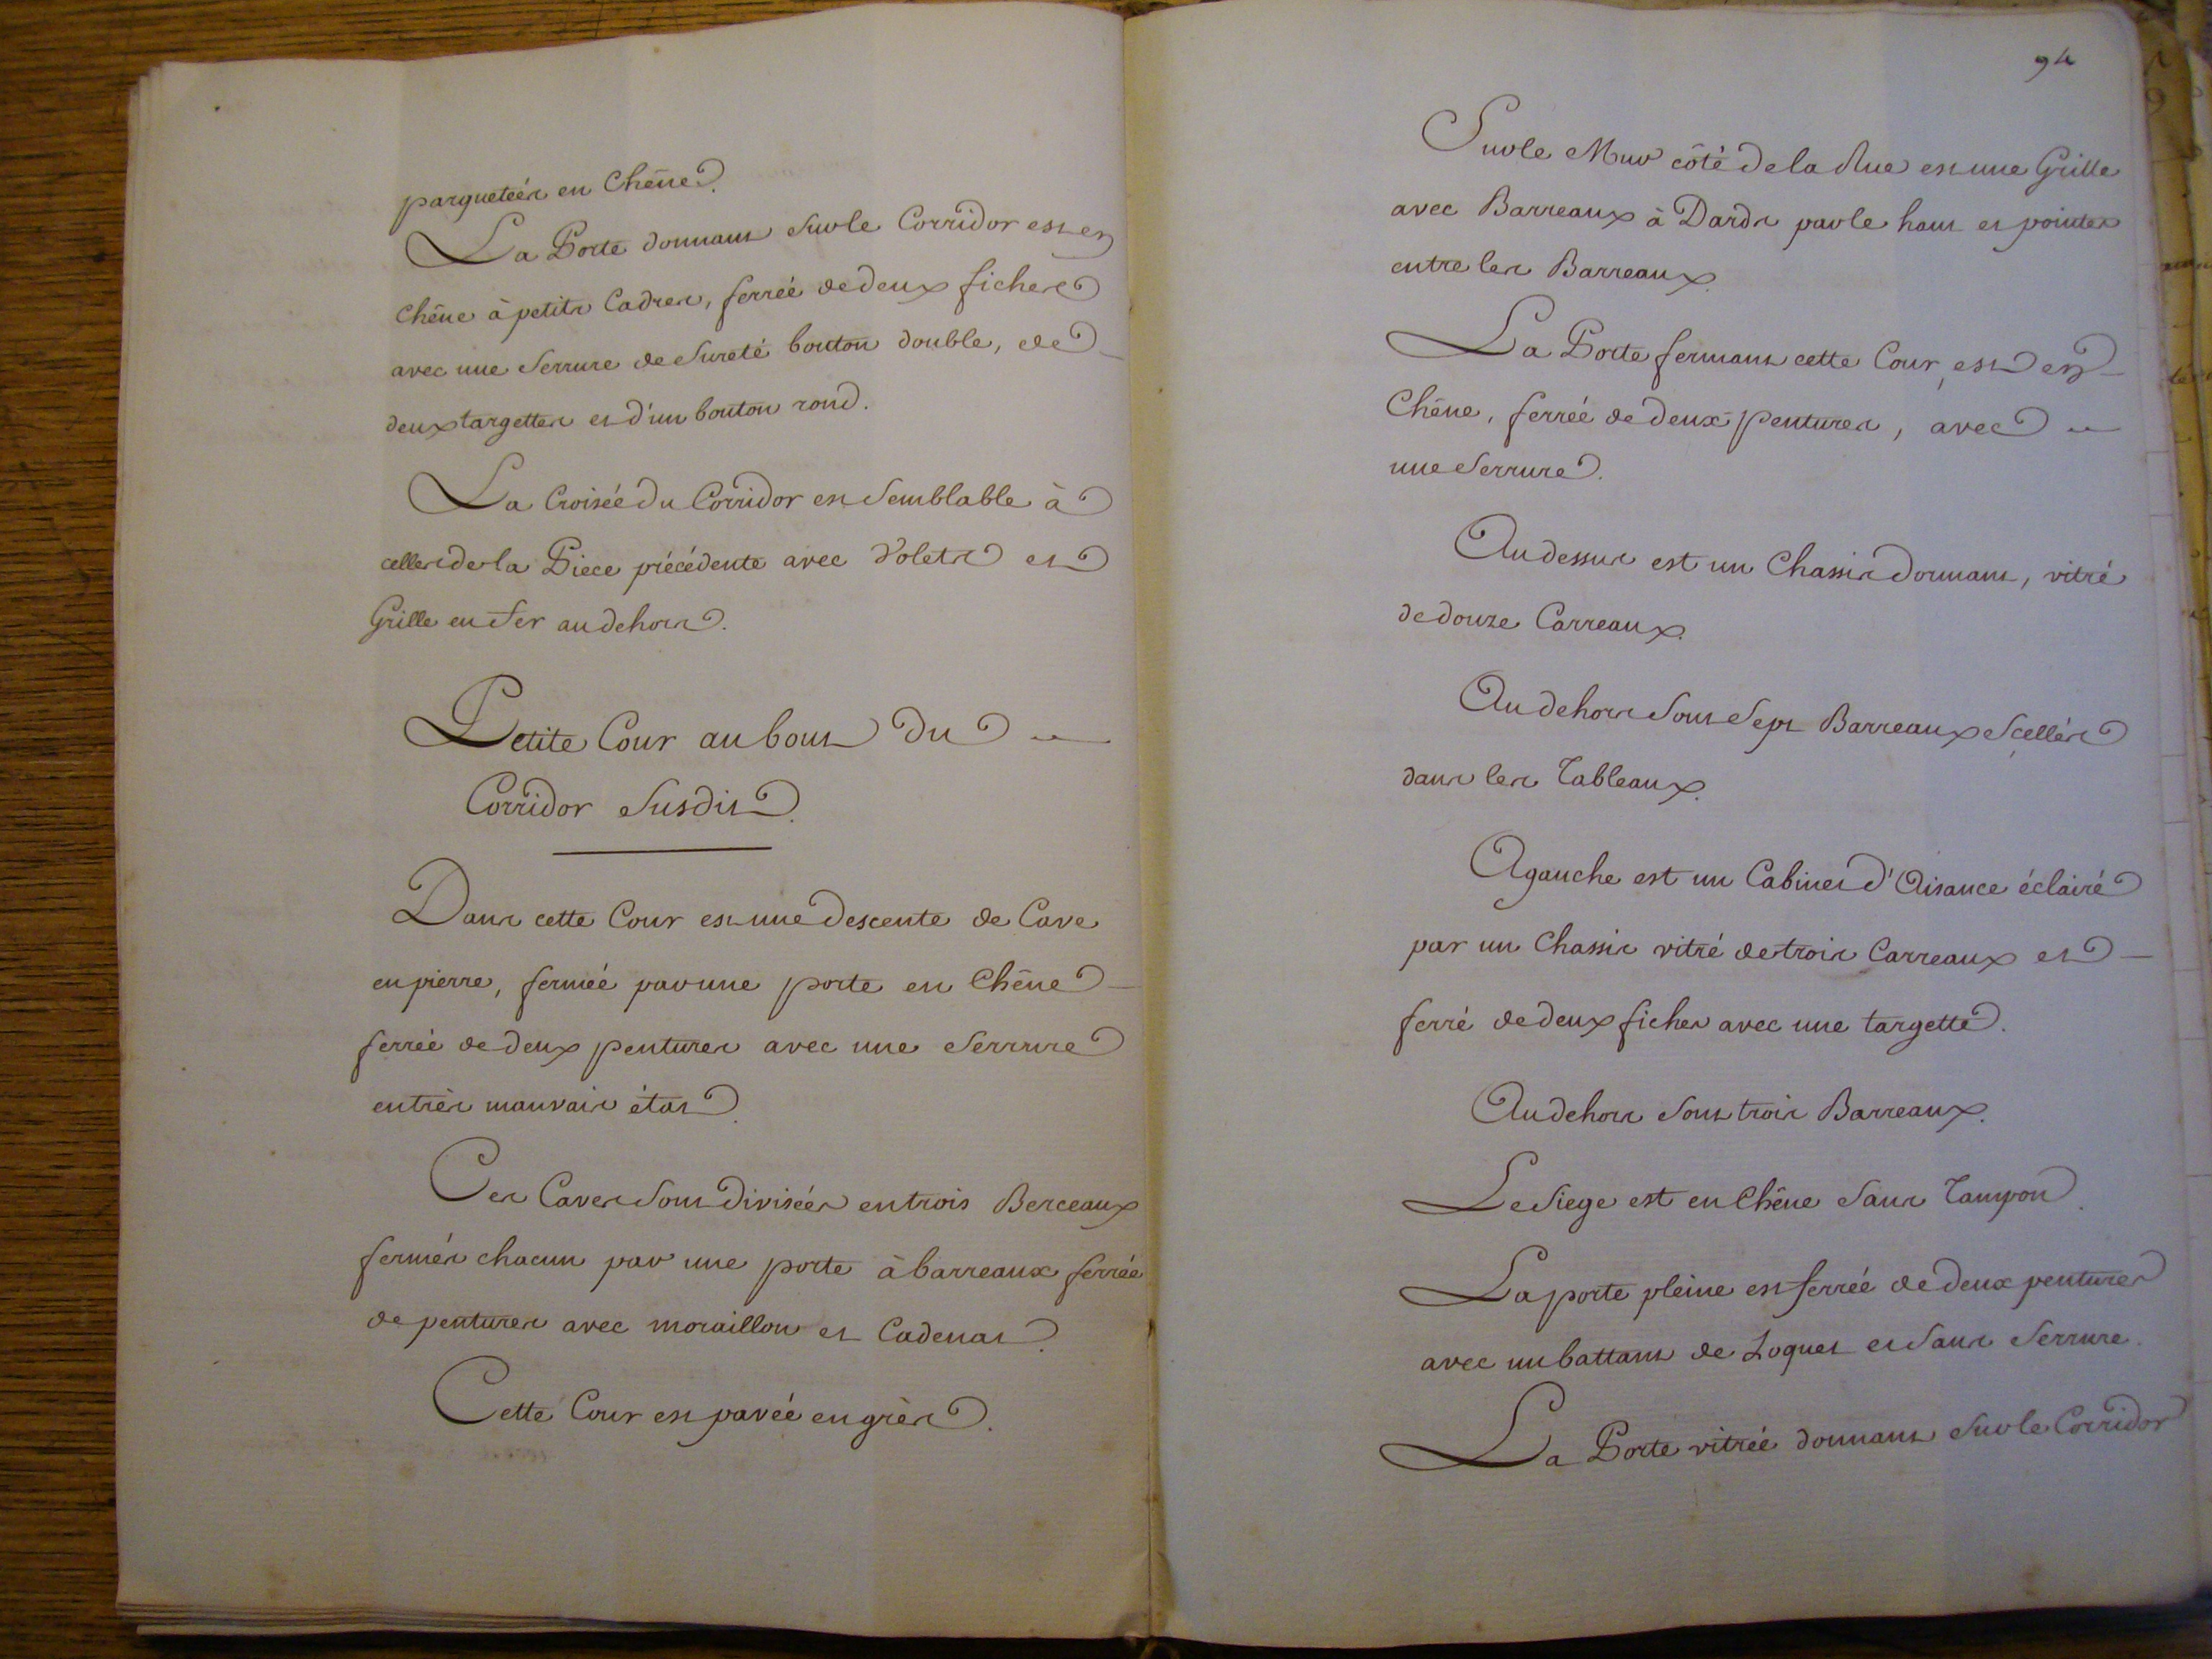 parquetées en Chêne.
La Porte donnant sur le Corridor est en
Chêne à petits Cadres, ferrée de deux fiches
avec une Serrure de Sureté bouton double, de
deux targettes et d'un bouton rond.
La Croisée du Corridor est Semblable à
celles de la Piece précédente avec Volets et
Grille en Fer au dehors.
Petite Cour au bout du
Corridor Susdit.
Dans cette Cour est une descente de Cave
en pierre, fermée par une porte en Chêne
ferrée de deux pentures avec une Serrure
en très mauvais état.
Ces Caves Sont divisées en trois Berceaux
fermés chacun par une porte à barreaux ferrée
de pentures avec moraillon et Cadenas.
Cette Cour est pavée en grès.
94
Sur le Mur côté de la Rue est une Grille
avec Barreaux à Dards par le haut et pointes
entre les Barreaux.
La Porte fermant cette Cour, est en
Chêne, ferrée de deux pentures, avec
une Serrure.
Au dessus est un Chassis dormant, vitré
de douze Carreaux.
Au dehors Sont Sept Barreaux Scellés
dans les Tableaux.
A gauche est un Cabinet d'Aisance éclairé
par un Chassis vitré de trois Carreaux et
ferré de deux fiches avec une targette.
Au dehors Sont trois Barreaux.
Le Siege est en Chêne Sans Tampon.
La porte pleine est ferrée de deux pentures
avec un battant de Loquet et Sans Serrure.
La Porte vitrée donnant Sur le Corridor